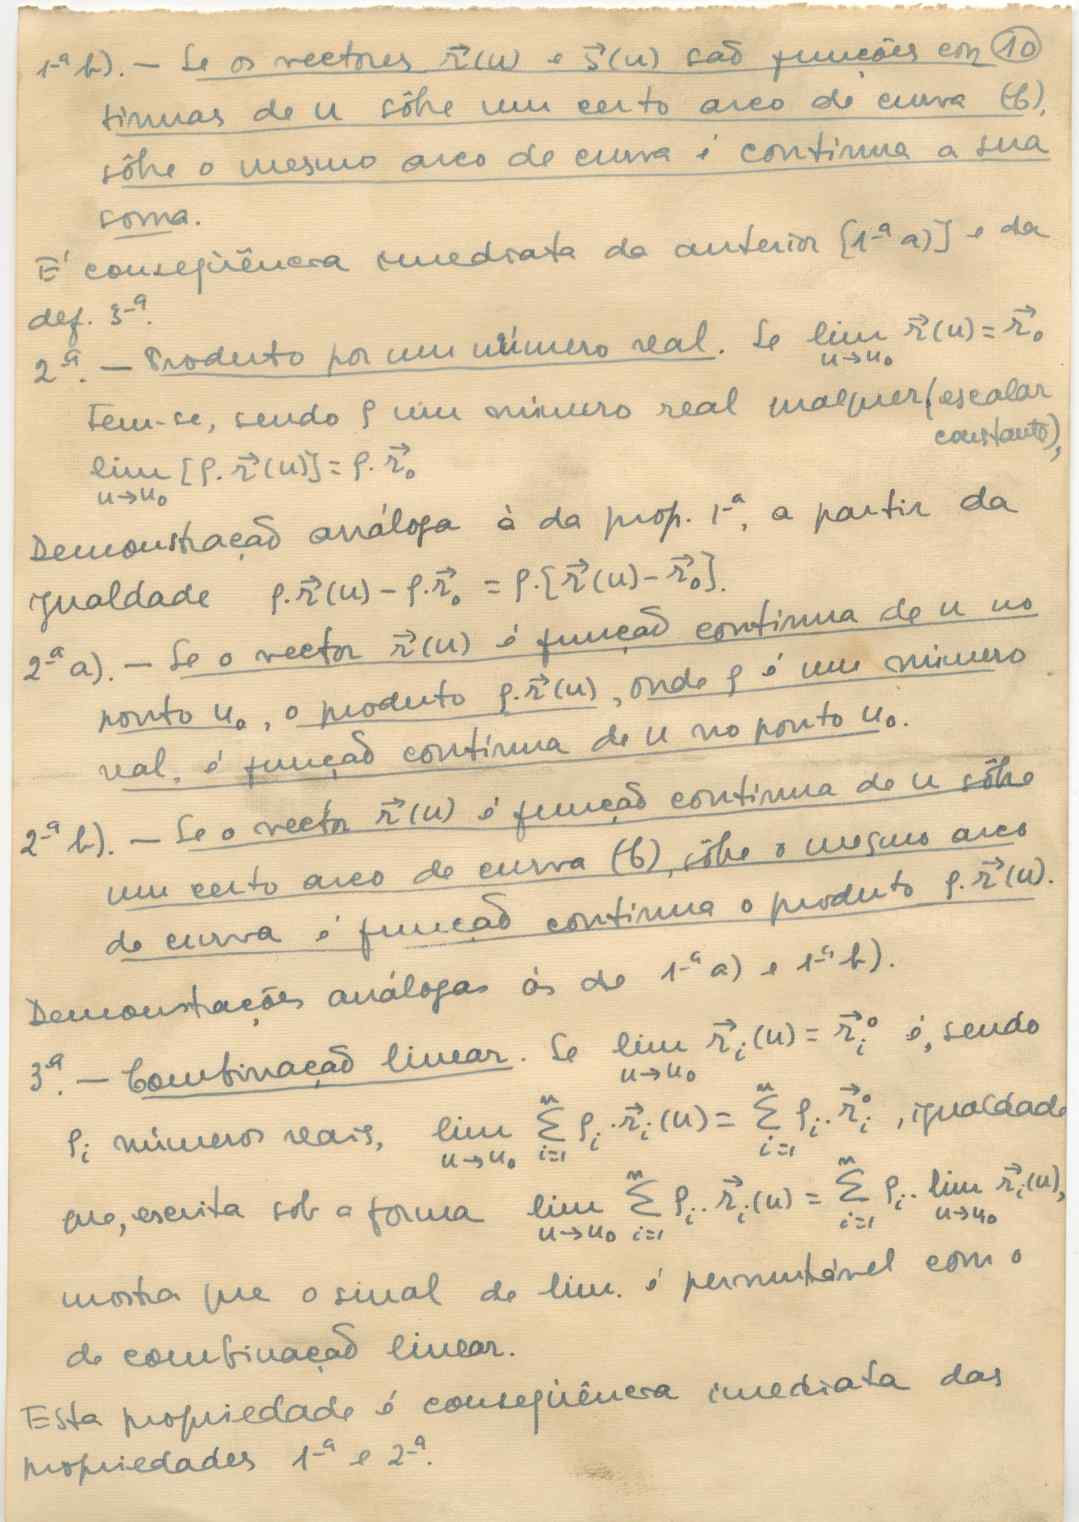 1-ª b). - Se os vectores r⃗(u) e s⃗(u) são funções con 10
tinuas de u sôbre um certo arco de curva (C),
sôbre o mesmo arco de curva é contínua a sua
soma.
É conseqüência imediata da anterior [1-ª a)] e da
def. 3-ª.
2-ª. - Produto por um número real. Se lim r⃗(u) = r⃗₀
u→u₀
Tem-se, sendo ρ um número real qualquer (escalar
constante),
lim [ρ.r⃗(u)] = ρ.r⃗₀
u→u₀
Demonstração análoga à da prop. 1-ª, a partir da
igualdade ρ.r⃗(u) - ρ.r⃗₀ = ρ.[r⃗(u) - r⃗₀].
2-ª a). - Se o vector r⃗(u) é função contínua de u no
ponto u₀, o produto ρ.r⃗(u), onde ρ é um número
real, é função contínua de u no ponto u₀.
2-ª b). - Se o vector r⃗(u) é função contínua de u sôbre
um certo arco de curva (C), sôbre o mesmo arco
de curva é função contínua o produto ρ.r⃗(u).
Demonstrações análogas às de 1-ª a) e 1-ª b).
3-ª. - Combinação linear. Se lim r⃗ᵢ(u) = r⃗ᵢ⁰ é, sendo
u→u₀
ρᵢ números reais, lim Σ ρᵢ.r⃗ᵢ(u) = Σ ρᵢ.r⃗ᵢ⁰, igualdade
u→u₀ i=1 n i=1 n
que, escrita sob a forma lim Σ ρᵢ.r⃗ᵢ(u) = Σ ρᵢ. lim r⃗ᵢ(u),
u→u₀ i=1 n i=1 n u→u₀
mostra que o sinal de lim. é permutável com o
de combinação linear.
Esta propriedade é conseqüência imediata das
propriedades 1-ª e 2-ª.